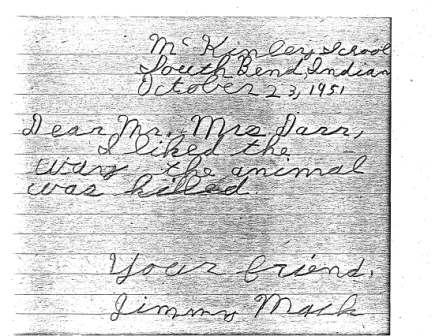 Mc Kinley School
South Bend, Indian
October 23, 1951
Dear Mr., Mrs Darr,
I liked the
way the animal
was killed.
Your friend,
Jimmy Mack